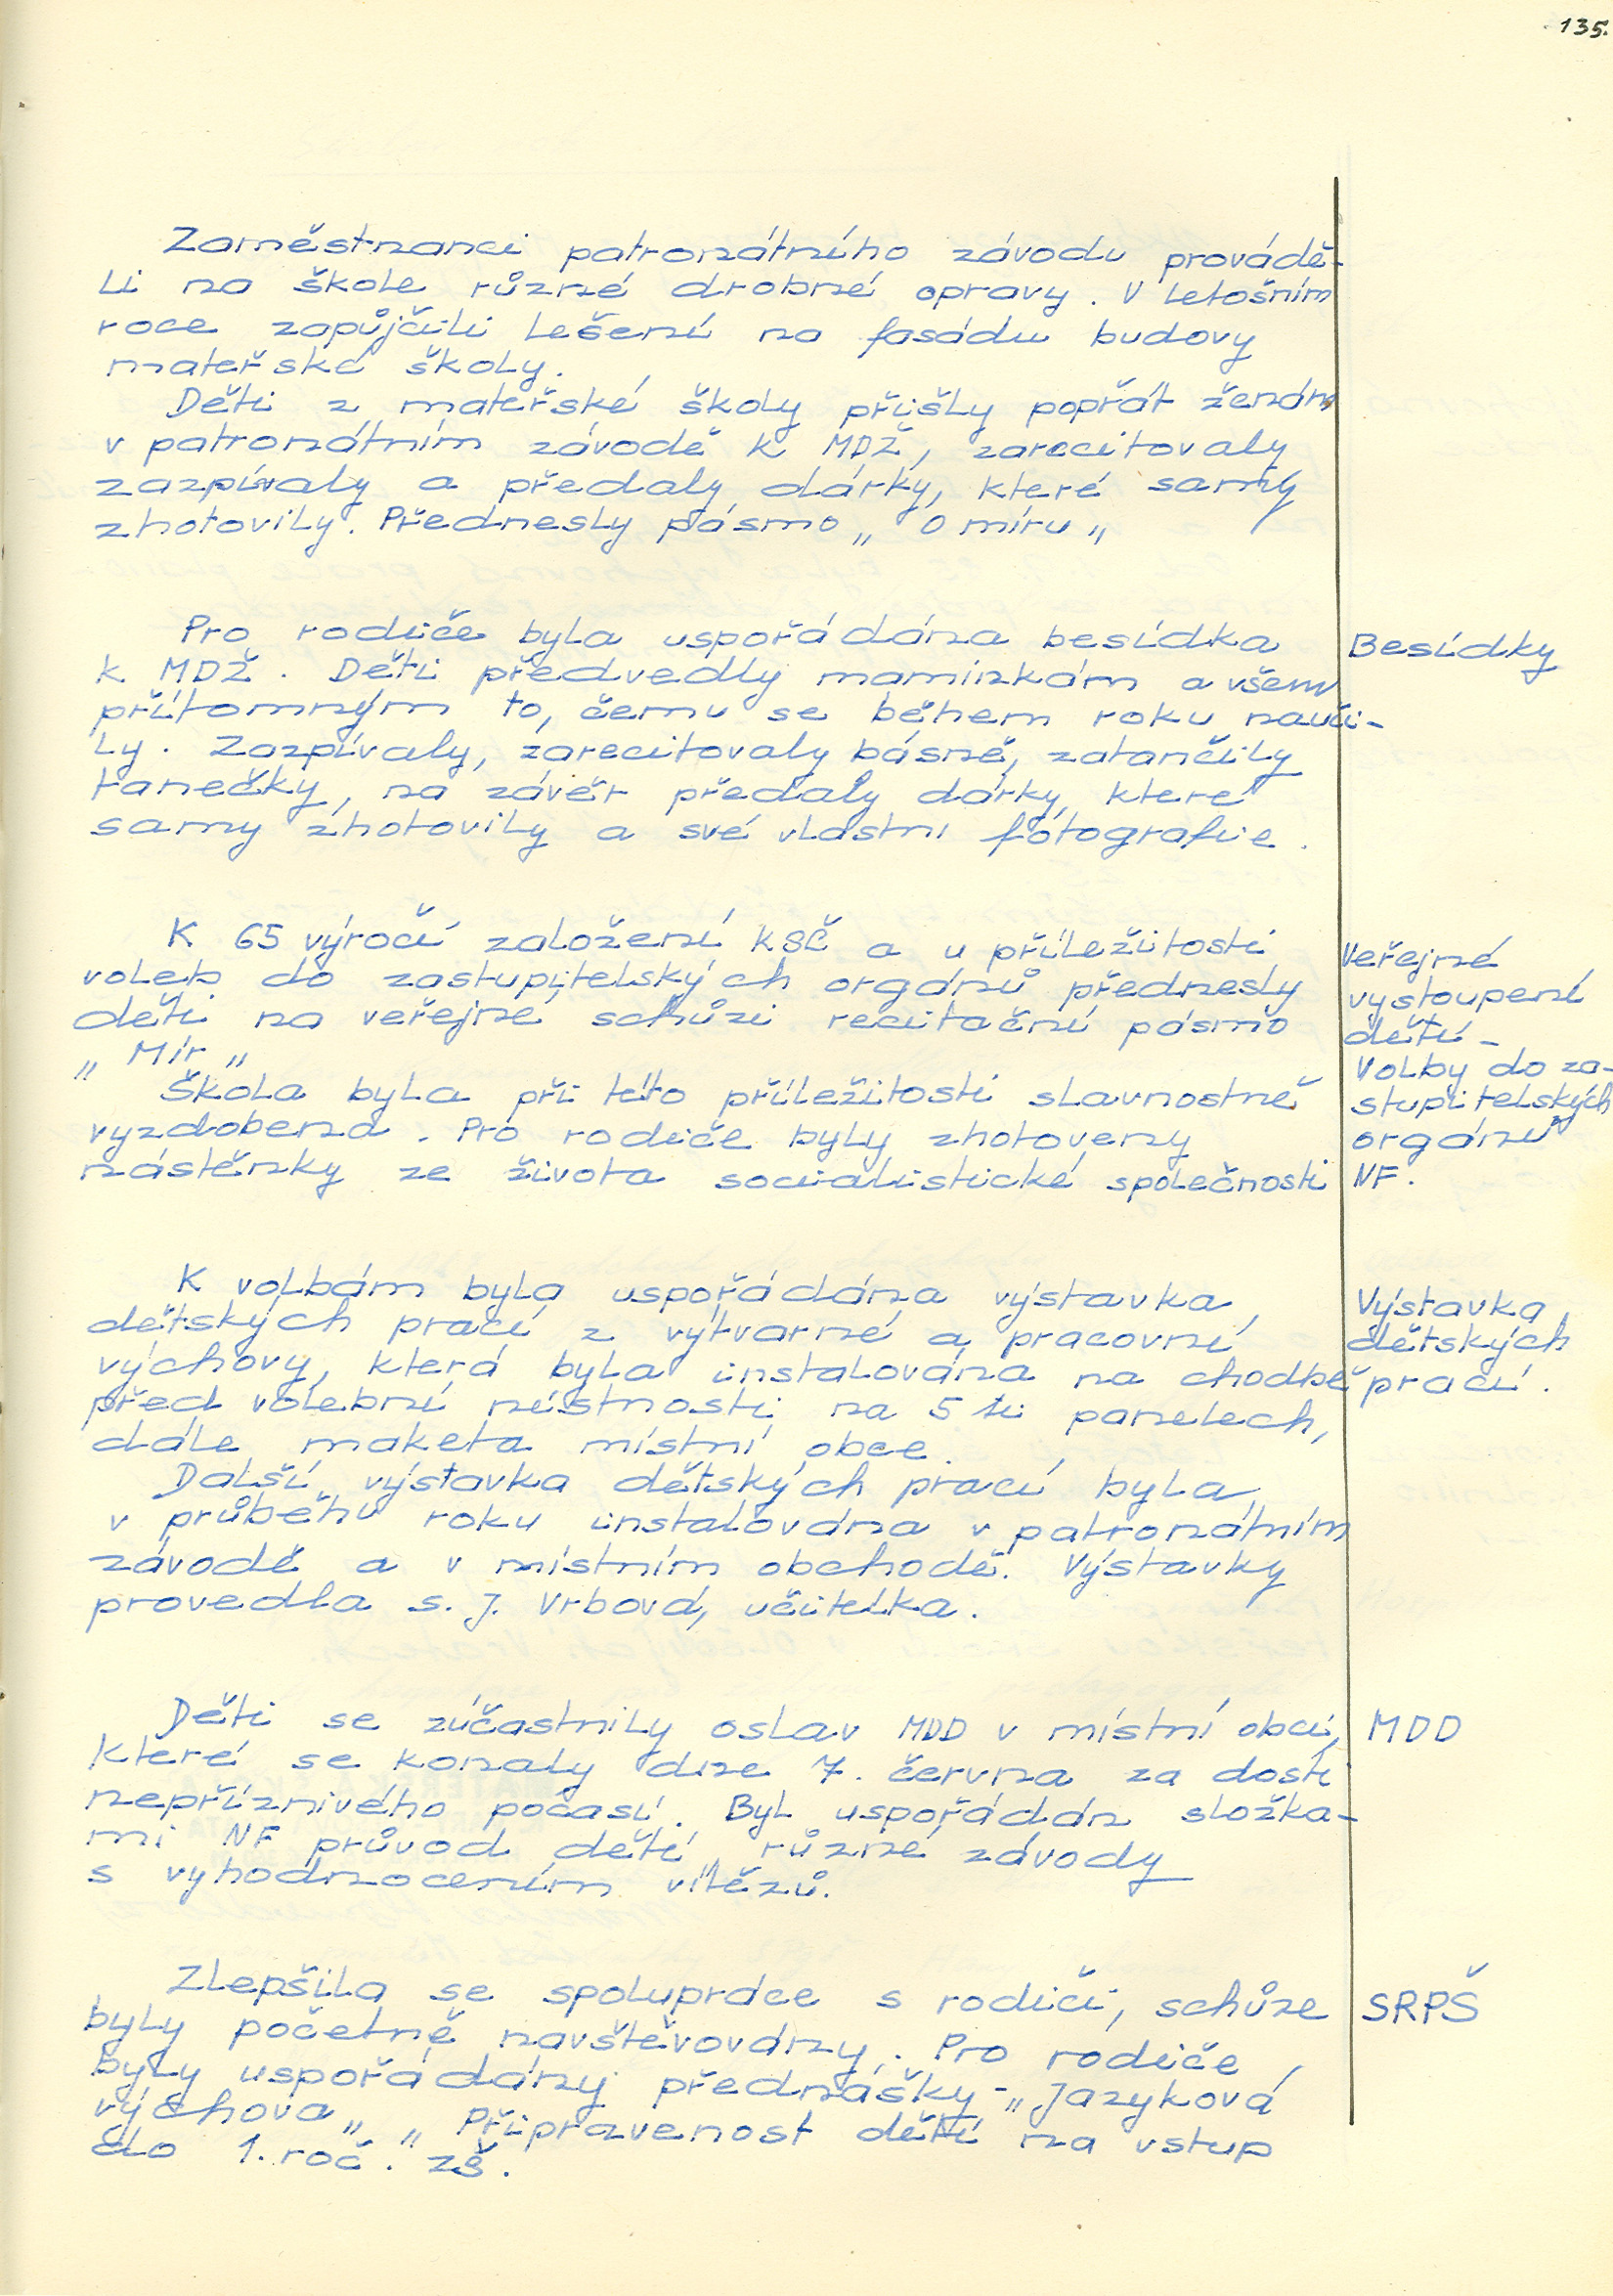 135.
Zaměstnanci patronátního závodu provádě-
li na škole různé drobné opravy. V letošním
roce zapůjčili lešení na fasádu budovy
mateřské školy.
Děti z mateřské školy přišly popřát ženám
v patronátním závodě k MDŽ, zarecitovaly
zazpívaly a předaly dárky, které samy
zhotovily. Přednesly pásmo „ O míru „
Pro rodiče byla uspořádána besídka
k MDŽ. Děti předvedly maminkám a všem
přítomným to, čemu se během roku nauči-
ly. Zazpívaly, zarecitovaly básně, zatančily
tanečky, na závěr předaly dárky, které
samy zhotovily a své vlastní fotografie.
Besídky
K 65 výročí založení KSČ a u příležitosti
voleb do zastupitelských orgánů přednesly
děti na veřejné schůzi recitační pásmo
„ Mír „
Škola byla při této příležitosti slavnostně
vyzdobena. Pro rodiče byly zhotoveny
nástěnky ze života socialistické společnosti
Veřejné
vystoupení
dětí -
Volby do za-
stupitelských
orgánů
NF.
K volbám byla uspořádána výstavka
dětských prací z výtvarné a pracovní
výchovy, která byla instalována na chodbě
před volební místností na 5 ti panelech,
dále maketa místní obce.
Další výstavka dětských prací byla
v průběhu roku instalována v patronátním
závodě a v místním obchodě. Výstavky
provedla s. J. Vrbová, učitelka.
Výstavka
dětských
prací.
Děti se zúčastnily oslav MDD v místní obci,
které se konaly dne 7. června za dosti
nepříznivého počasí. Byl uspořádán složka-
mi NF průvod dětí, různé závody
s vyhodnocením vítězů.
MDD
Zlepšila se spolupráce s rodiči, schůze
byly početně navštěvovány. Pro rodiče
byly uspořádány přednášky - „ Jazyková
výchova „ „ Připravenost dětí na vstup
do 1. roč. ZŠ.
SRPŠ